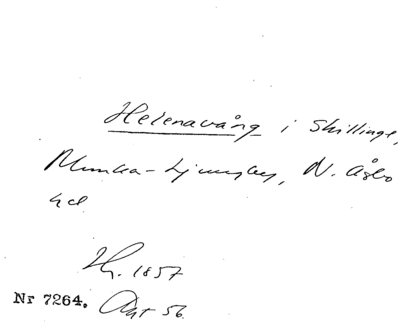 Helenavång i Skillinge,
Munka-Ljungby, N. Åsbo
hd
Hg. 1857
Nr 7264. Akt 56